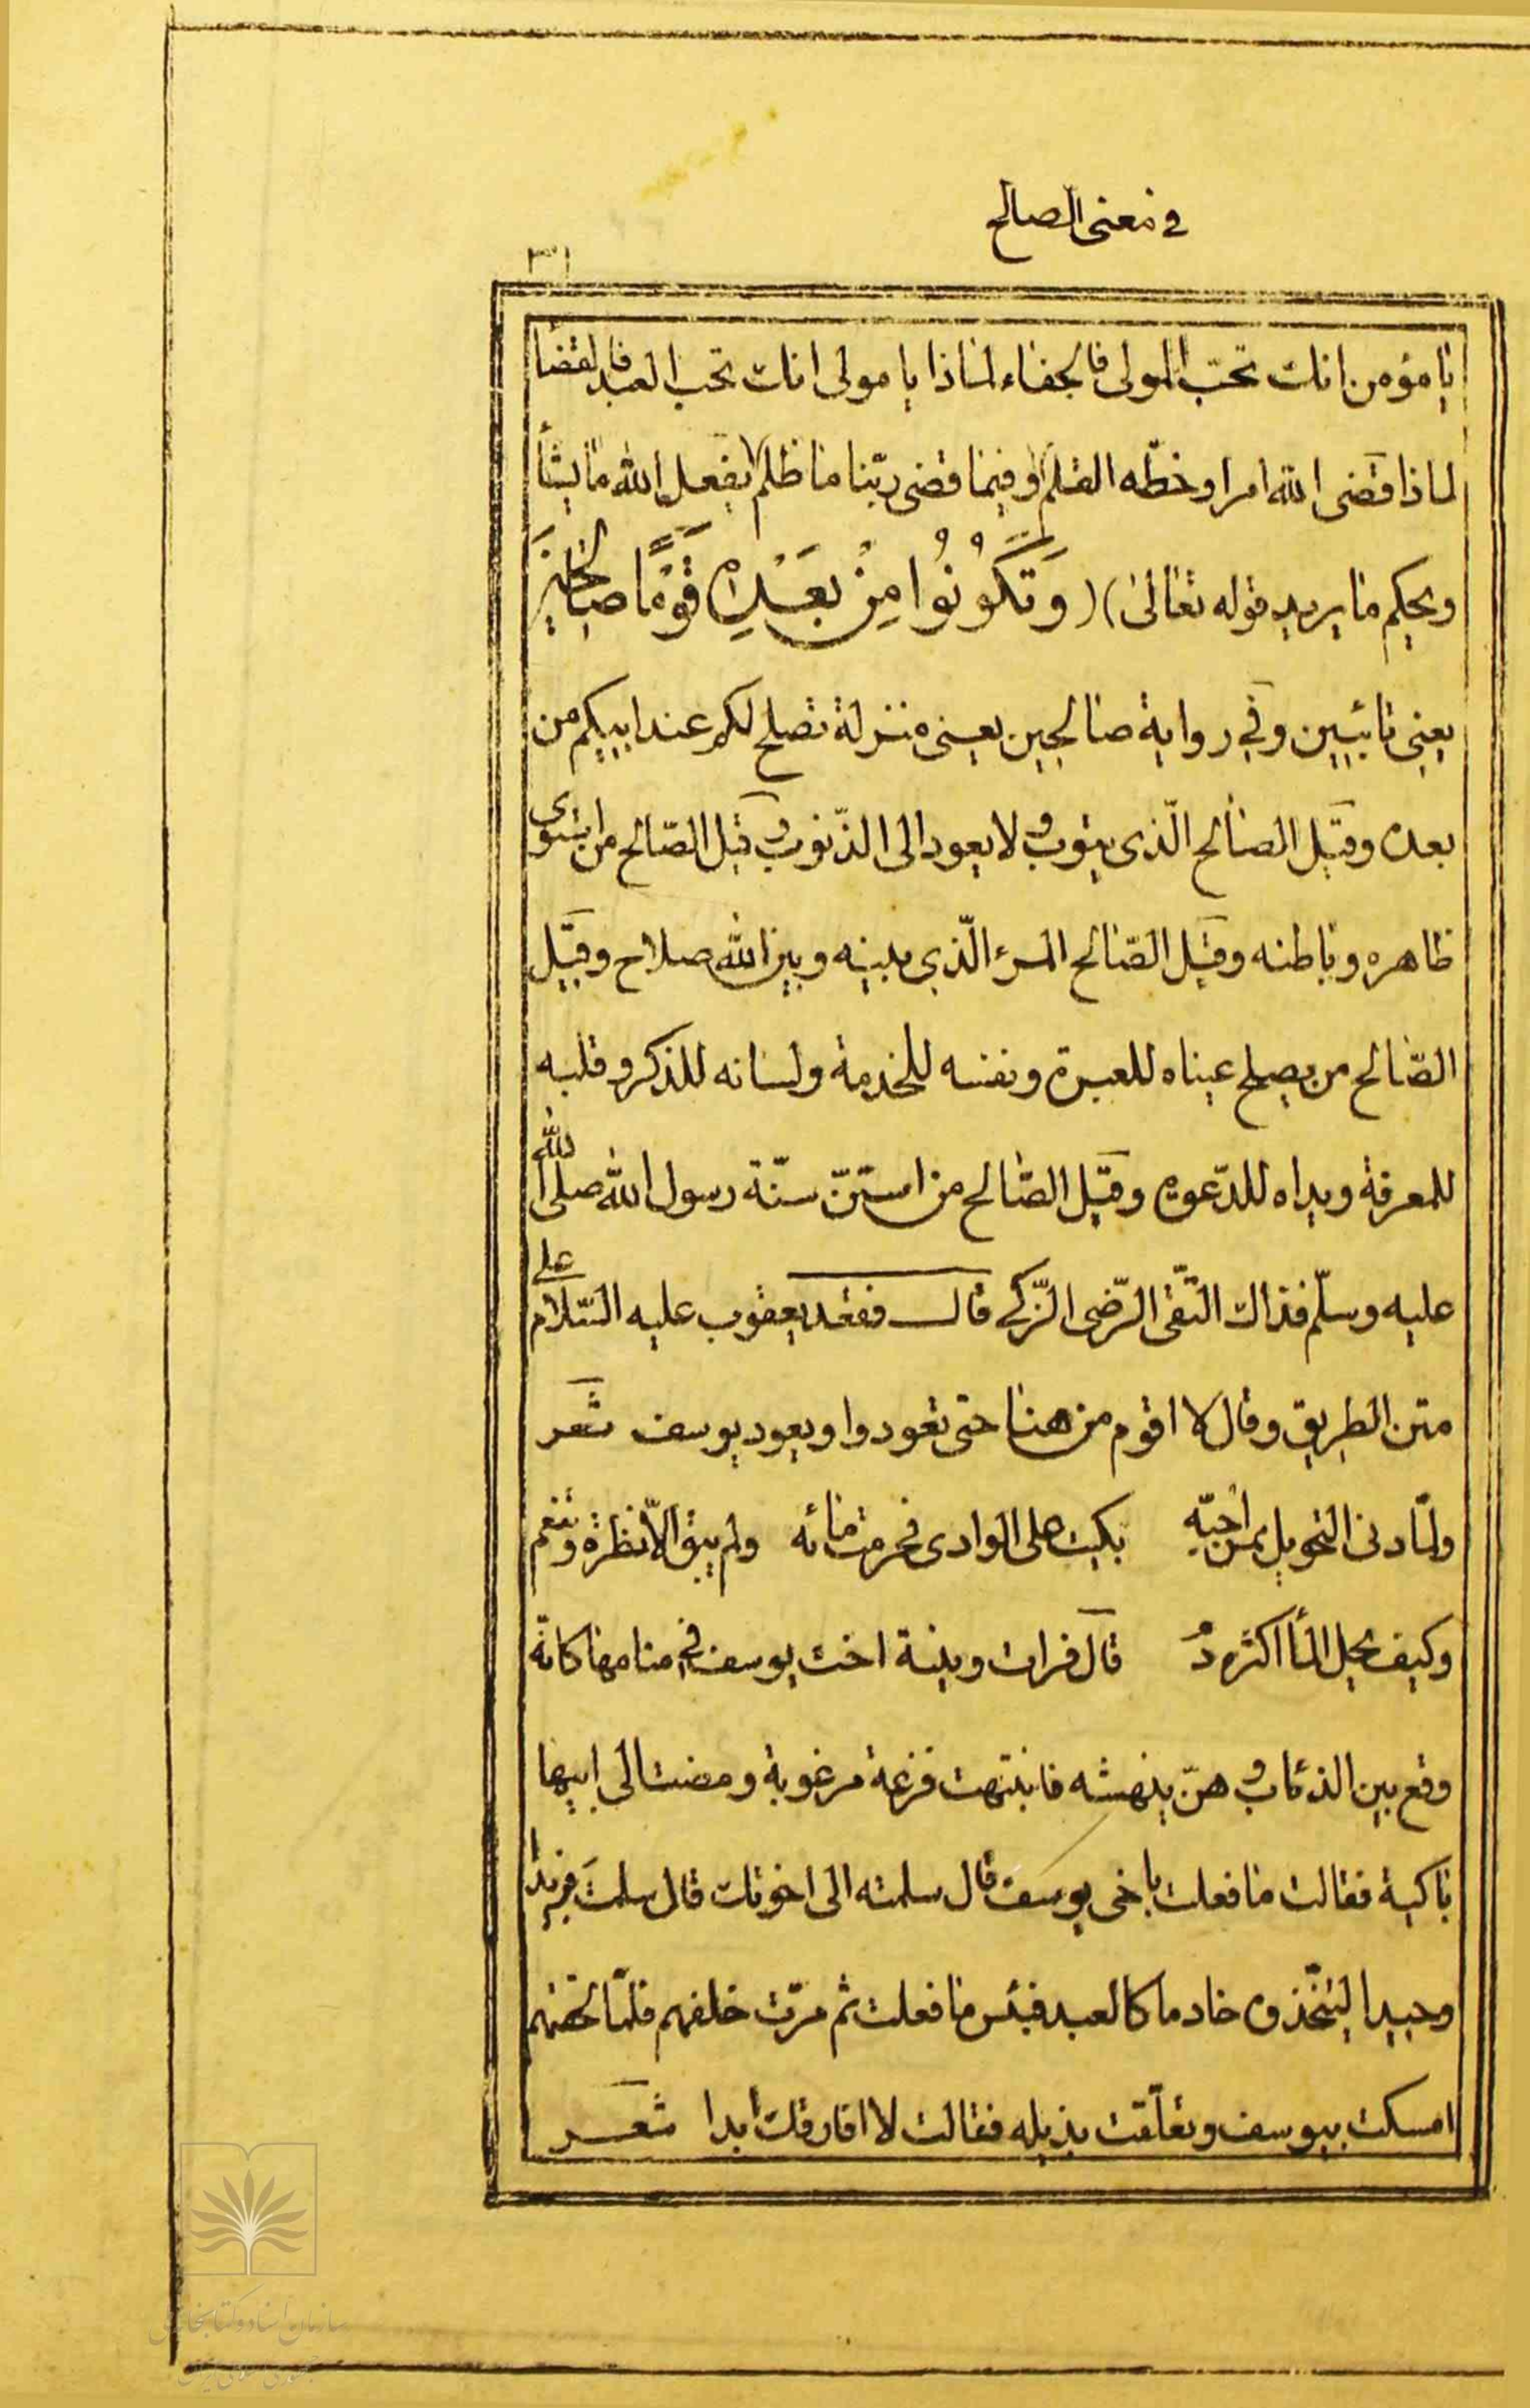 في معنى الصالح
٣١
يا مؤمن انك تحبّ المولى فالجفاء لماذا يا مولى انك تحب العبد فالقضا
لماذا قضى الله امرا وخطّه القلم وفيما قضى ربّنا ما ظلم يفعل الله ما يشأ
ويحكم ما يريد قوله تعالى) (وَتَكُونُوا مِنْ بَعْدِهِ قَوْمًا صَالِحِينَ
يعنى تائبين وفي رواية صالحين يعنى منزلة تصلح لكم عند ابيكم من
بعده وقيل الصالح الّذى يتوب ولا يعود الى الذّنوب وقيل الصّالح من استوى
ظاهره وباطنه وقيل الصّالح المرء الّذي بينه وبين الله صلاح وقيل
الصّالح من يصلح عيناه للعبرة ونفسه للخدمة ولسانه للذكر وقلبه
للمعرفة ويداه للدّعوة وقيل الصّالح من استنّ سنّة رسول الله صلى الله
عليه وسلّم فذاك التّقى الرّضى الزّكي قال فقعد يعقوب عليه السّلام على
متن الطريق وقال لا اقوم من هنا حتى تعودوا ويعود يوسف شعر
ولمّا دنى التحويل بمن احبّه بكيت على الوادى فحرمت مائه ولم يبق الاّ نظرة وتغم
وكيف يحل المأ اكثره دمُ قال فرات وينة اخت يوسف في منامها كانّه
وقع بين الذئاب وهنّ ينهشه فانتبهت فزعة مرغوبة ومضت الى ابيها
باكية فقالت ما فعلت باخى يوسف قال سلمته الى اخوتك قال سلمت فريدا
وحيدا ليتّخذوه خادما كالعبد فبئس ما فعلت ثم مرّت خلفهم فلمّا لحقتهم
امسكت بيوسف وتعلّقت بذيله فقالت لا افارقك ابدا شعر